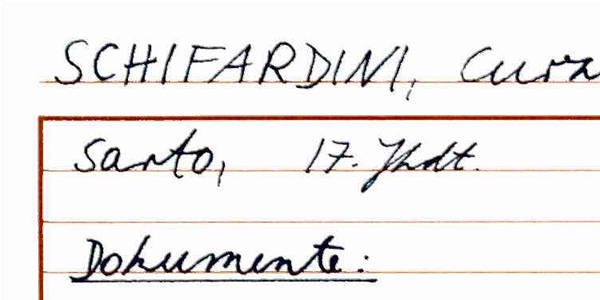 SCHIFARDINI, Curz
Sarto, 17. Jhdt.
Dokumente: